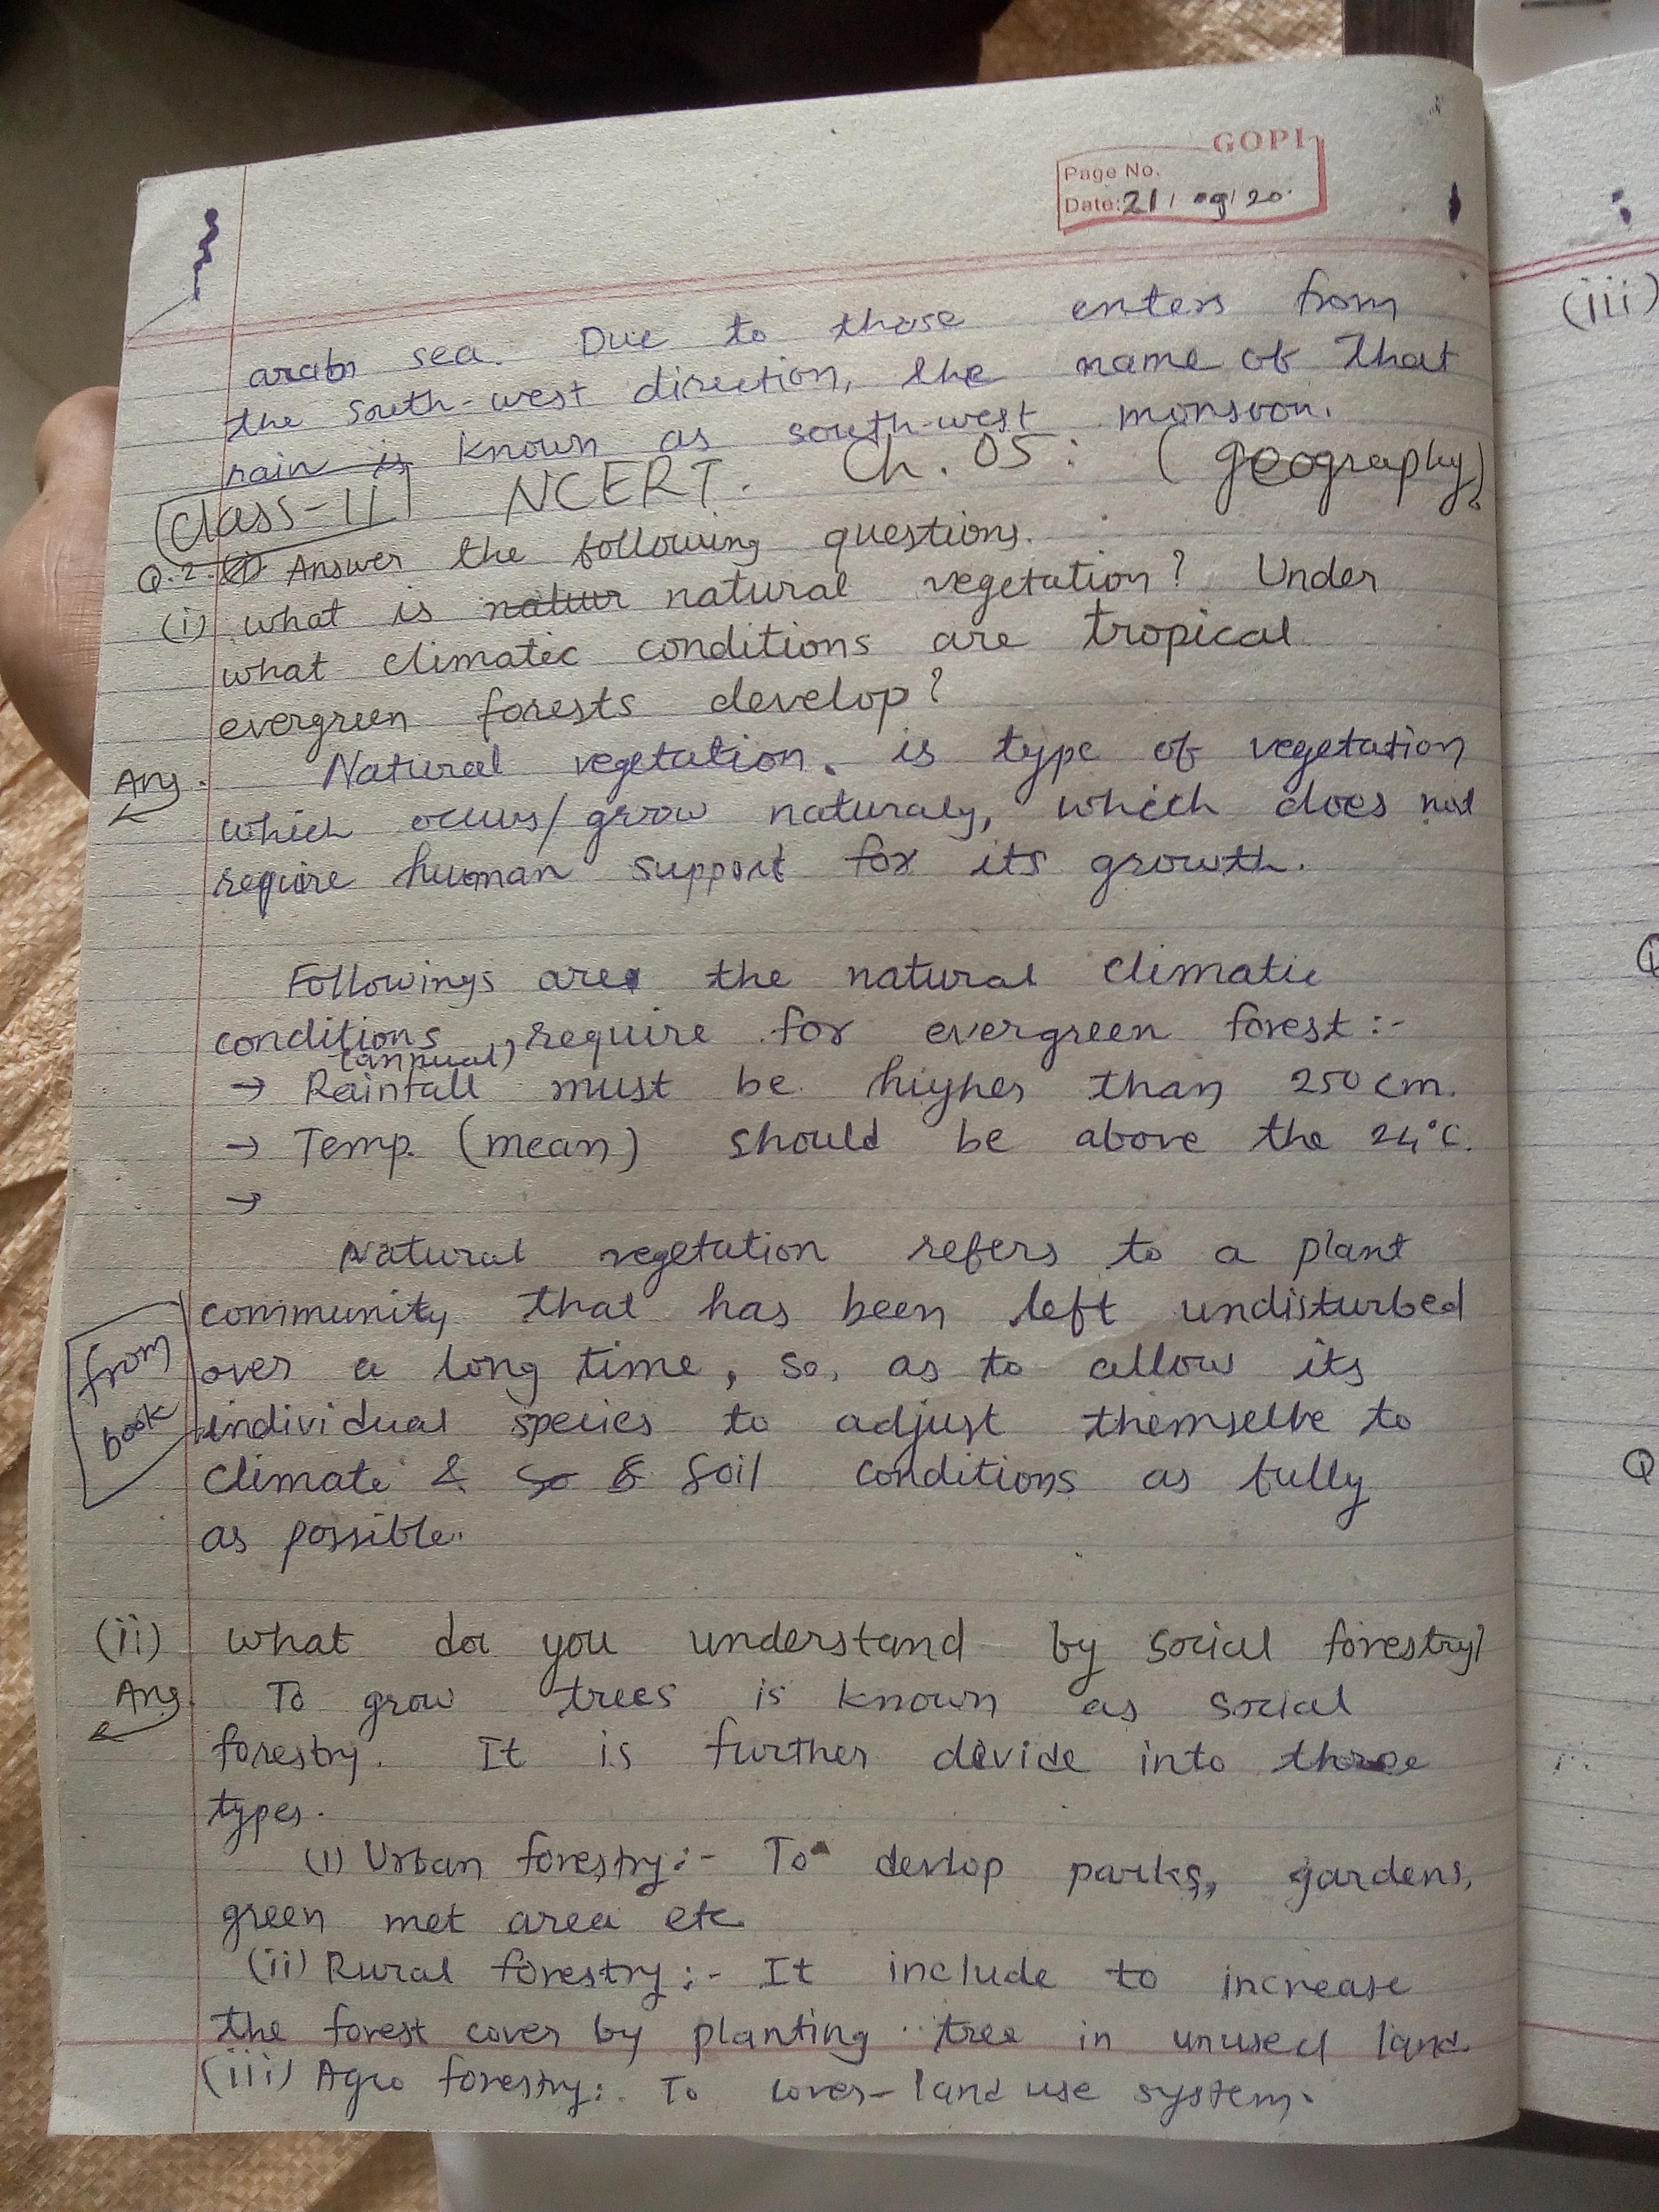 GOPI
Page No.
Date: 21/09/20
arabn sea. Due to those enters from
the South-west direction, the name of that
rain is known as south-west monsoon.
Class-11 NCERT. Ch. 05: (geography)
Q.2. (i) Answer the following questions.
(i) what is natur natural vegetation? Under
what climatic conditions are tropical
evergreen forests develop?
Ans. Natural vegetation. is type of vegetation
which occurs/grow naturaly, which does not
require human support for its growth.
Followings are the natural climatic
conditions, require for evergreen forest:-
(annual)
→ Rainfall must be higher than 250 cm.
→ Temp. (mean) should be above the 24°C.
→
Natural vegetation refers to a plant
community that has been left undisturbed
from over a long time, so, as to allow its
book individual species to adjust themselve to
climate & so & soil conditions as fully
as possible.
(ii) what do you understand by social forestry?
Ans. To grow trees is known as social
forestry. It is further divide into three
types.
(i) Urban forestry:- To devlop parks, gardens,
green met area etc
(ii) Rural forestry:- It include to increase
the forest cover by planting tree in unused land
(iii) Agro forestry:- To cover-land use system.
(iii)
Q
Q